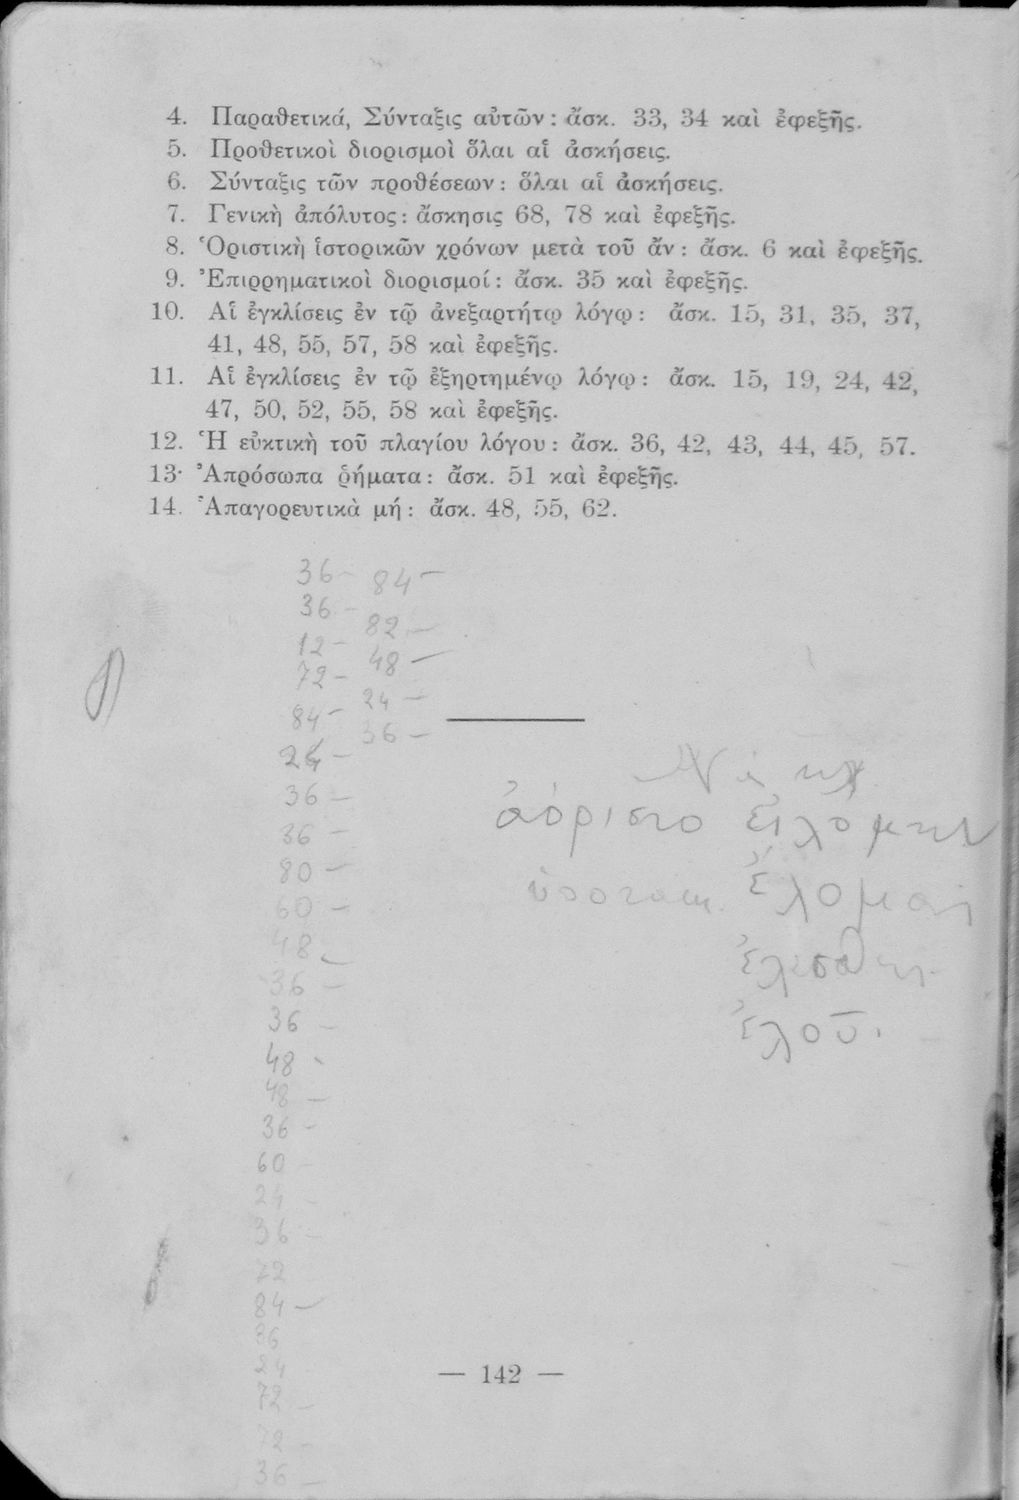 4. Παραθετικά, Σύνταξις αὐτῶν: ἄσκ. 33, 34 καὶ ἐφεξῆς.
5. Προθετικοὶ διορισμοὶ ὅλαι αἱ ἀσκήσεις.
6. Σύνταξις τῶν προθέσεων: ὅλαι αἱ ἀσκήσεις.
7. Γενικὴ ἀπόλυτος: ἄσκησις 68, 78 καὶ ἐφεξῆς.
8. Ὁριστικὴ ἱστορικῶν χρόνων μετὰ τοῦ ἄν: ἄσκ. 6 καὶ ἐφεξῆς.
9. Ἐπιρρηματικοὶ διορισμοί: ἄσκ. 35 καὶ ἐφεξῆς.
10. Αἱ ἐγκλίσεις ἐν τῷ ἀνεξαρτήτῳ λόγῳ: ἄσκ. 15, 31, 35, 37,
41, 48, 55, 57, 58 καὶ ἐφεξῆς.
11. Αἱ ἐγκλίσεις ἐν τῷ ἐξηρτημένῳ λόγῳ: ἄσκ. 15, 19, 24, 42,
47, 50, 52, 55, 58 καὶ ἐφεξῆς.
12. Ἡ εὐκτικὴ τοῦ πλαγίου λόγου: ἄσκ. 36, 42, 43, 44, 45, 57.
13· Ἀπρόσωπα ῥήματα: ἄσκ. 51 καὶ ἐφεξῆς.
14. Ἀπαγορευτικὰ μή: ἄσκ. 48, 55, 62.
36 – 84 –
36 –
82 –
12 –
48 –
72 –
24 –
84 –
36 –
24 –
36 –
36 –
80 –
60 –
48 –
36 –
36 –
48 -
48 –
36 –
60 –
24 –
36 –
72
84 –
36
24
72 –
72 –
36 –
ἀόριστο εἱλόμην
ἕλομαι
ἑλοῦ.
— 142 —